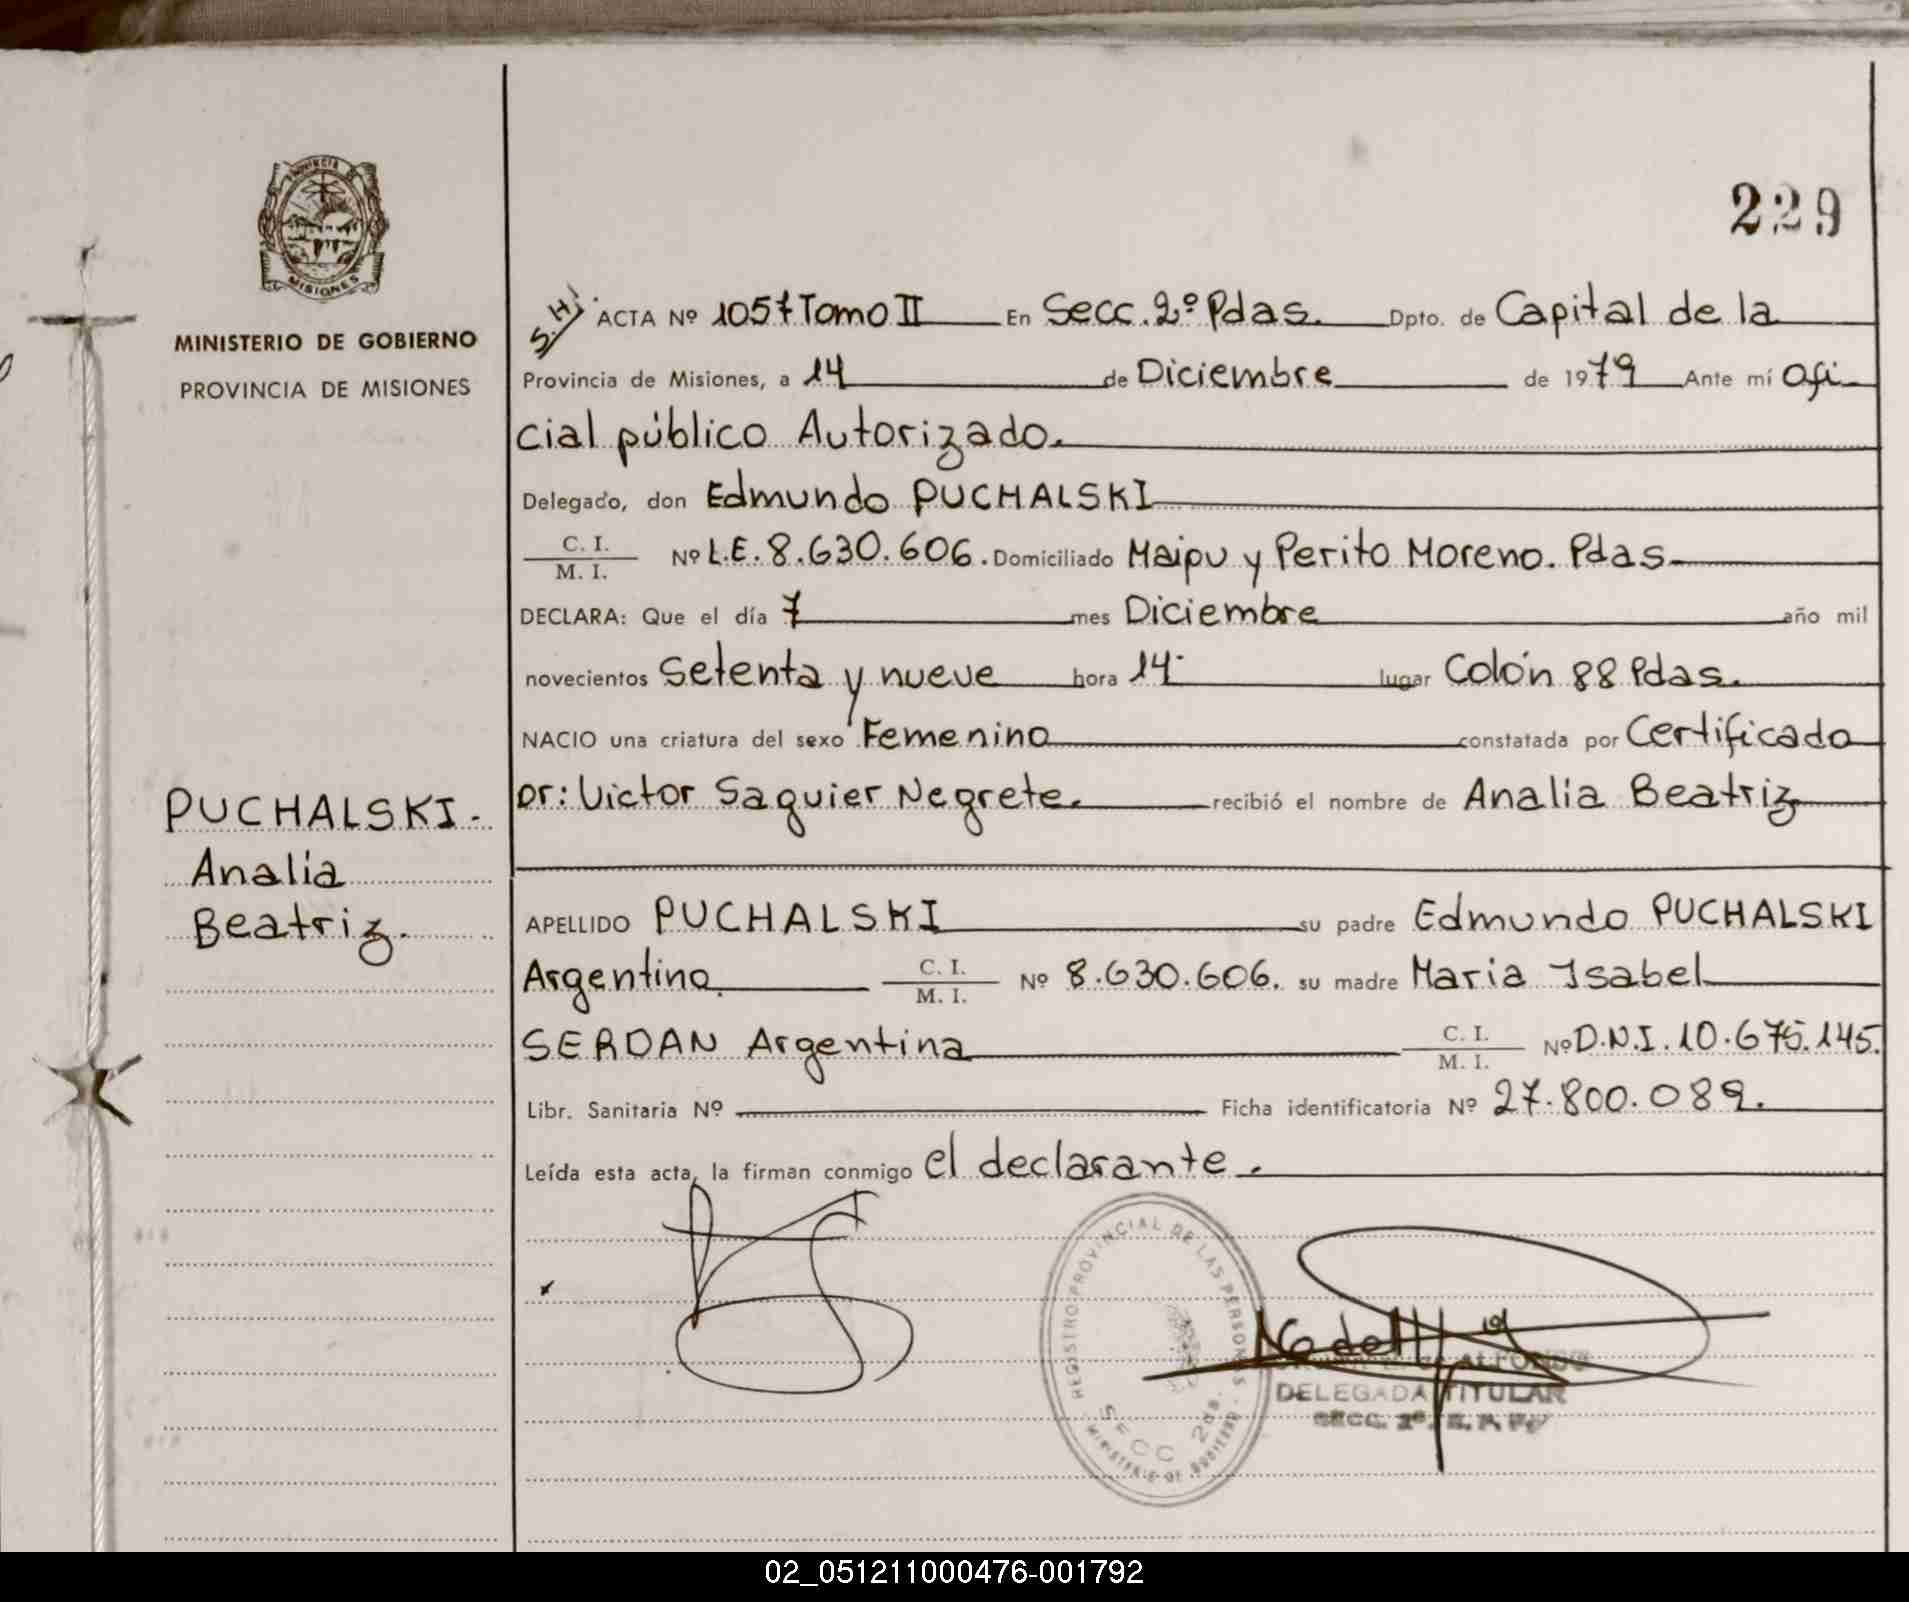 229
PROVINCIA DE
MISIONES
MINISTERIO DE GOBIERNO
PROVINCIA DE MISIONES
S.H. ACTA Nº 1057 Tomo II En Secc. 2º Pdas. Dpto. de Capital de la
Provincia de Misiones, a 14 de Diciembre de 1979 Ante mí ofi
cial público Autorizado.
Delegado, don Edmundo PUCHALSKI
C. I.
M. I. Nº L.E. 8.630.606. Domiciliado Maipu y Perito Moreno. Pdas
DECLARA: Que el día 7 mes Diciembre año mil
novecientos setenta y nueve hora 14 lugar Colón 88 Pdas.
NACIO una criatura del sexo Femenino constatada por Certificado
Dr: Victor Saguier Negrete. recibió el nombre de Analia Beatriz
PUCHALSKI.
Analia
Beatriz.
APELLIDO PUCHALSKI su padre Edmundo PUCHALSKI
Argentino C. I.
M. I. Nº 8.630.606. su madre Maria Isabel
SERDAN Argentina C. I.
M. I. Nº D.N.I. 10.675.145.
Libr. Sanitaria Nº Ficha identificatoria Nº 27.800.089.
Leída esta acta, la firman conmigo el declarante.
REGISTRO PROVINCIAL DE LAS PERSONAS
SECC 2da.
MINISTERIO DE GOBIERNO
DELEGADA TITULAR
SECC. 2ª
02_051211000476-001792